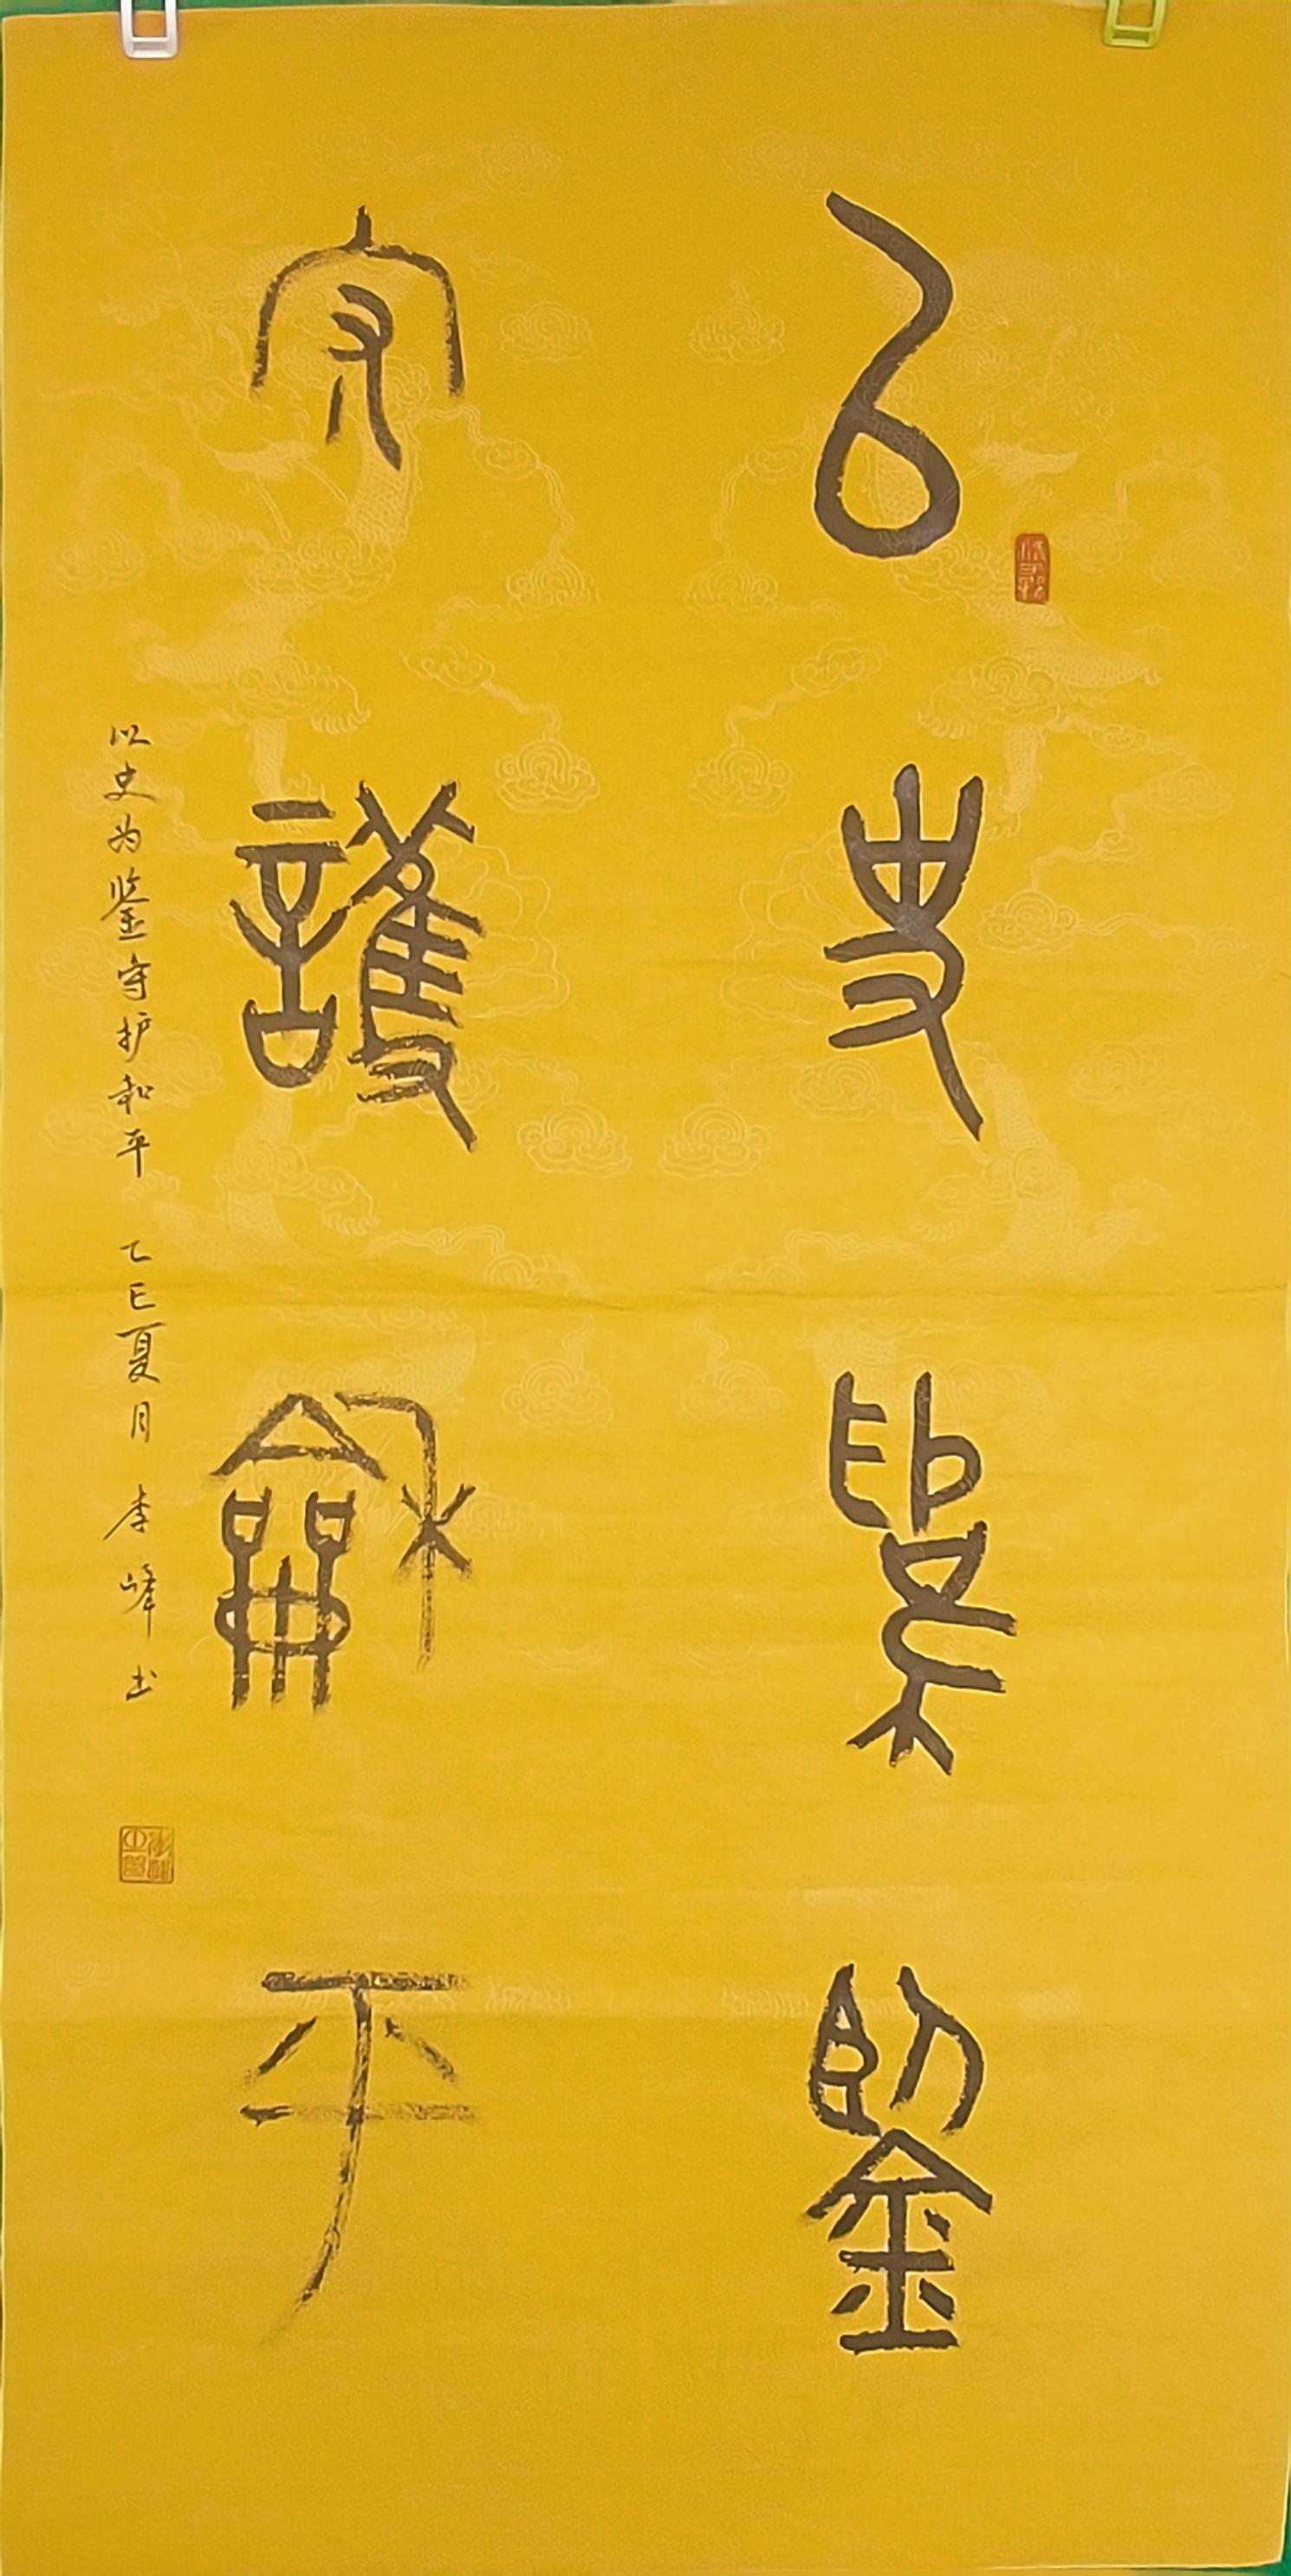 以史為鑒
守護龢平
以史为鉴守护和平 乙巳夏月 李峰书